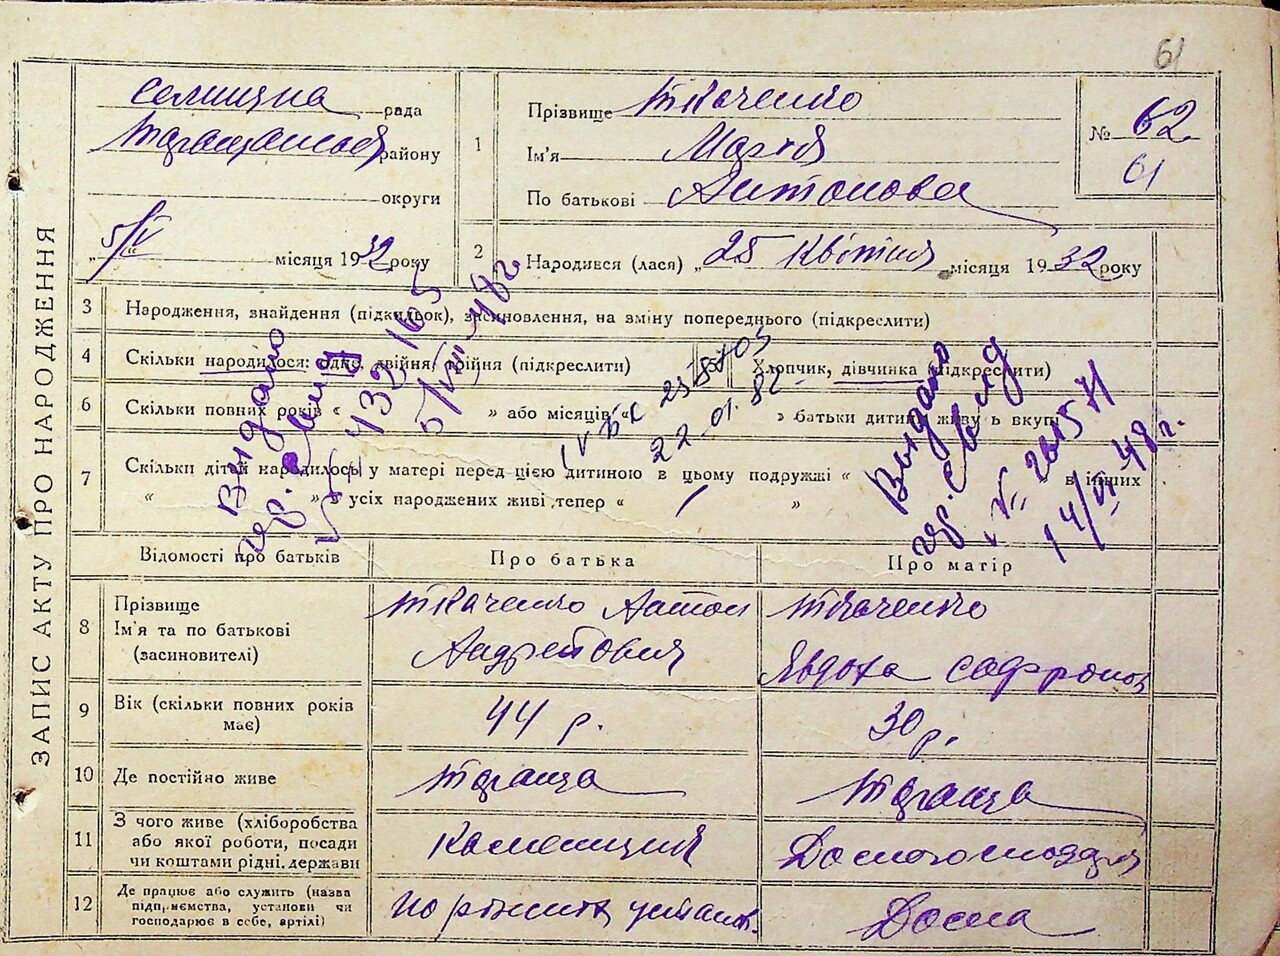 61
ЗАПИС АКТУ ПРО НАРОДЖЕННЯ
селищна рада
Таращанськ району
округи
„ 5/V “ місяця 1932 року
1
Прізвище Ткаченко
Ім'я Марія
По батькові Антонова
№ 62
61
2
Народився (лася) „ 25 Квітня місяця 1932 року
3 Народження, знайдення (підкидьок), засиновлення, на зміну попереднього (підкреслити)
4 Скільки народилося: одно, двійня, трійня (підкреслити)
Хлопчик, дівчинка (підкреслити)
6 Скільки повних років « » або місяців « » батьки дитини живуть вкупі
7 Скільки дітей народилось у матері перед цією дитиною в цьому подружжі « в інших
“ » в усіх народжених живі тепер “ — »
Выдано
432165
5/VIII 48 г.
IV БК 258703
22.01.82
Выдано
14/VI 48 г.
Відомості про батьків Про батька Про матір
8 Прізвище
Ім'я та по батькові
(засиновителі)
Ткаченко Антон
Андрейович
Ткаченко
Явдоха Софронов
9 Вік (скільки повних років має) 44 р. 30 р.
10 Де постійно живе Тараща Тараща
11 З чого живе (хліборобства
або якої роботи, посади
чи коштами рідні, держави
Каменщик
Домогосподаря
12 Де працює або служить (назва
підприємства, установи чи
господарює в себе, артілі)
по різних установ.
Дома